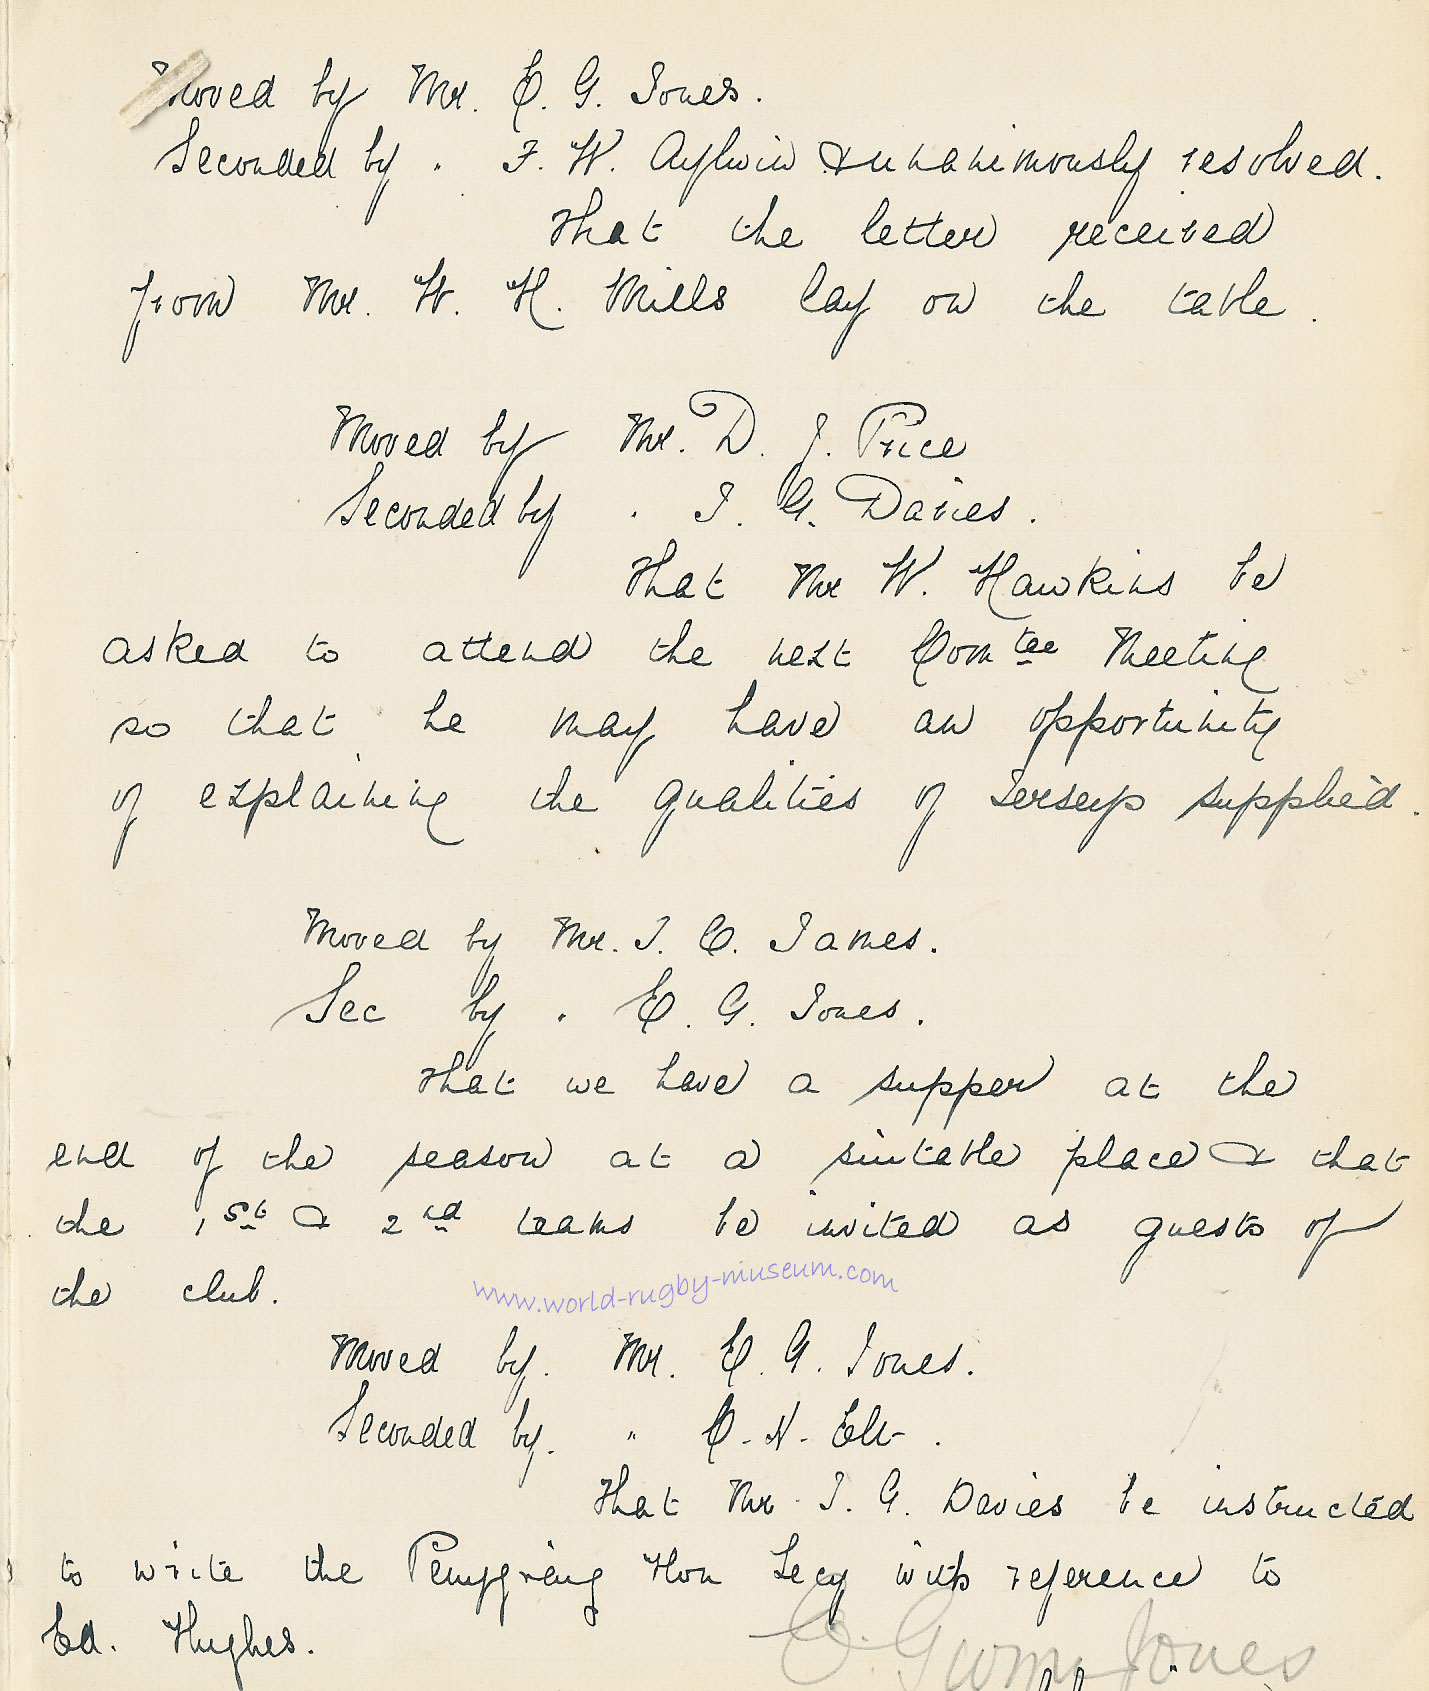 Moved by Mr. E. G. Jones.
Seconded by " F. W. Aylwin & unanimously resolved.
That the letter received
from Mr. W. H. Mills lay on the table.
Moved by Mr. D. J. Price
Seconded by " T. G. Davies.
That Mr W. Hawkins be
asked to attend the next Comtee Meeting
so that he may have an opportunity
of explaining the qualities of Jerseys supplied.
Moved by Mr. T. C. James.
Sec by " E. G. Jones.
That we have a supper at the
end of the season at a suitable place & that
the 1st & 2nd teams be invited as guests of
the club.
www.world-rugby-museum.com
Moved by. Mr. E. G. Jones.
Seconded by. " C. N.
That Mr. T. G. Davies be instructed
to write the Penygraig Hon Secy with reference to
Ed. Hughes.
E. Gwyn Jones